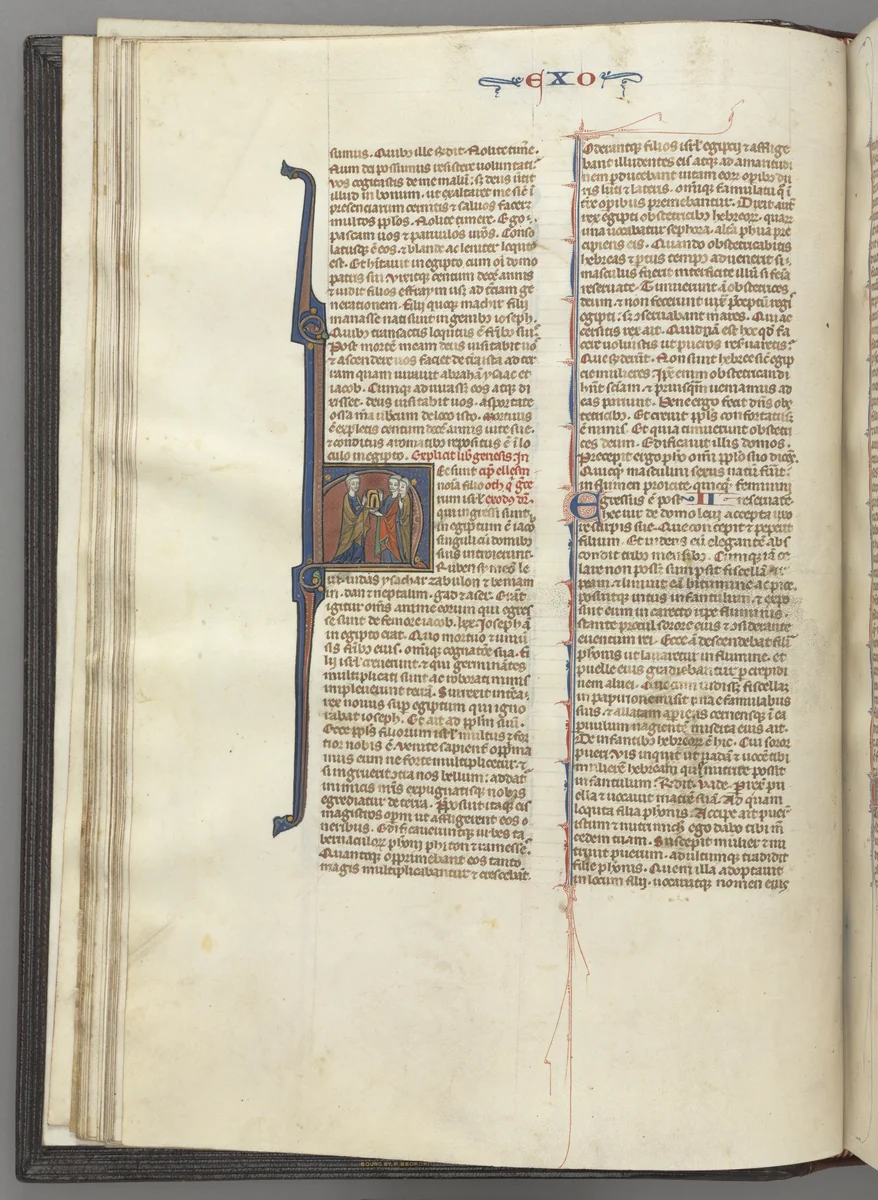 EXO
sumus. Quibꝫ ille rñdit. Nolite timẽe.
Num dei possumus resistere voluntati.
vos cogitastis de me malũ: sꝫ deus ũtit
illud in bonum. ut exaltaret me sic̃ ĩ
presenciarum cernitis ⁊ saluos facẽt
multos pp̃los. Nolite timere. Ego
pascam uos ⁊ paruulos ur̃os. Conso
latusqꝫ ẽ eos. ⁊ blande ac leniter locutꝰ
est. Et hĩtauit in egipto cum oĩ domo
patris sui. Vixitqꝫ centum decẽ annis
⁊ uidit filios effraym usqꝫ ad tẽiam ge
nerationem. filii quoqꝫ machir filii
manasse nati sunt in genibꝫ ioseph.
Quibꝫ transactis locutus ẽ fr̃ibꝫ suis.
Post mortẽ meam deus uisitabit uos
⁊ ascendere uos faciet de tr̃a ista ad ter
ram quam iurauit abrahã ysaac et
iacob. Cumqꝫ adiurassꝫ eos atqꝫ di
xisset. deus uisitabit uos. asportate
ossa m̃a uobiscum de loco isto. Mortuus
ẽ expletis centum decẽ annis uite sue.
⁊ conditus aromatibꝫ repositus ẽ ĩ lo
culo in egipto. Explicit lib genesis. In
Ec sunt cip̃ ellesm
noĩa filio oth q̃ gce
rum isrl̃ exodꝰ dr̃.
qui ingressi sunt
in egiptum ẽ iaco
singuli cũ domibꝫ
suis introierunt.
Ruben symeõ le
ui. iudas ysachar zabulon ⁊ beniam
in. dan ⁊ neptalim. gad ⁊ aser. Erãt
igitur om̃s anime eorum qui egres
se sunt de femore iacob. lxx. Ioseph ã
in egipto erat. Quo mortuo ⁊ uniũ
sis fr̃ibꝫ eius. omniqꝫ cognatõe sua. fi
lij isrl̃ creuerunt. ⁊ qui germinãtes
multiplicati sunt ac roborati nimis
impleuerunt terrã. Surrexit intẽa
rex nouus sup egiptum qui igno
rabat ioseph. Et ait ad pp̃lm suũ.
Ecce pp̃ls filiorum isrl̃ multus ⁊ for
tior nobis ẽ. venite sapient opp̃ma
mus eum ne forte multiplicetur. ⁊
si ingruerit ↄtra nos bellum: addat
inimicis nr̃is expugnatisqꝫ nobis
egrediatur de terra. Proposuit itaqꝫ eis
magistros opm̃ ut affligerent eos o
neribus. Edificaueruntqꝫ urbes ta
bernaculorꝫ phar̃oni phiton ⁊ ramesse.
Quantoqꝫ opprimebant eos tanto
magis multiplicabantur ⁊ crescebãt.
Oderantqꝫ filios isrl̃ egiptij ⁊ afflige
bant illudentes eis atqꝫ ad amaritudi
nem ꝑducebant uitam eorꝫ opibꝫ du
ris luti ⁊ lateris. omniqꝫ famulatu q̃ ĩ
tr̃e opibus premebantur. Dixit aut̃
rex egipti obstetricibꝫ hebreorꝫ. quarꝫ
una uocabatur sephora. alt̃a phua pre
cipiens eis. Quando obstetricabitis
hebreas ⁊ ptus tempꝰ aduenerit si
masculus fuerit interficite illũ si feĩa
reseruate. Timuerunt ã obstetrices
deum. ⁊ non fecerunt iux̃ p̃ceptũ regis
egipti: sꝫ ↄseruabant mares. Qui ac
cersitis rex ait. Quidnã est hoc qd̃ fa
cere voluistis ut pueros reseruaretis.
Que rñderũt. Non sunt hebree sic̃ egip
cie mulieres. Ip̃e enim obstetricandi
hñt sciam. ⁊ priusqm̃ ueniamus ad
eas pariunt. Bene ergo fecit dñs obs
tetricibꝫ. Et creuit pp̃ls confortatusqꝫ
ẽ nimis. Et quia timuerunt obstetri
ces deum. Edificauit illis domos.
Precepit ergo pho om̃i pp̃lo suo dices.
Quicqꝫ masculini sexus natũ fuit:
in flumen proicite. quicqꝫ feminini
Egressus ẽ post II reseruate.
hec uir de domo leui accepta uxo
re stirpis sue. Que concepit ⁊ peperit
filium. Et uidens eũ elegantẽ abs
condit tribꝫ mensibꝫ. Cumqꝫ iã ce
lare non possꝫ sumpsit fiscellã
⁊ liniuit eã bitumine ac pice.
posuitqꝫ intus infantulum. ⁊ expo
suit eum in carecto ripe fluminis.
stante procul sorore eius ⁊ ↄsiderante
euentum rei. Ecce ã descendebat filia
ph̃onis ut lauaretur in flumine. et
puelle eius gradiebantur ꝑ crepidi
nem aluei. Que cum uidissꝫ fiscellã
in papirione misit unã e famulabus
suis. ⁊ allatam apiẽs cernensqꝫ ĩ ea
puulum uagientẽ miserta eius ait.
De infantibꝫ hebreorꝫ ẽ hic. Cui soror
pueri. Vis inquit ut uadã ⁊ uocẽ tibi
mulierẽ hebream que nutrire possit
infantulum. Rñdit. vade. Prexit pu
ella ⁊ uocauit matrẽ suã. Ad quam
locuta filia ph̃onis. Accipe ait puer̃
istum ⁊ nutri mich̃. ego dabo tibi m̃
cedem tuam. Suscepit mulier ⁊ nu
triuit puerum. adultumqꝫ tradidit
filie ph̃onis. Quem illa adoptauit
in locum filij. uocauitqꝫ nomen eius
BOUND BY F. BEDFORD